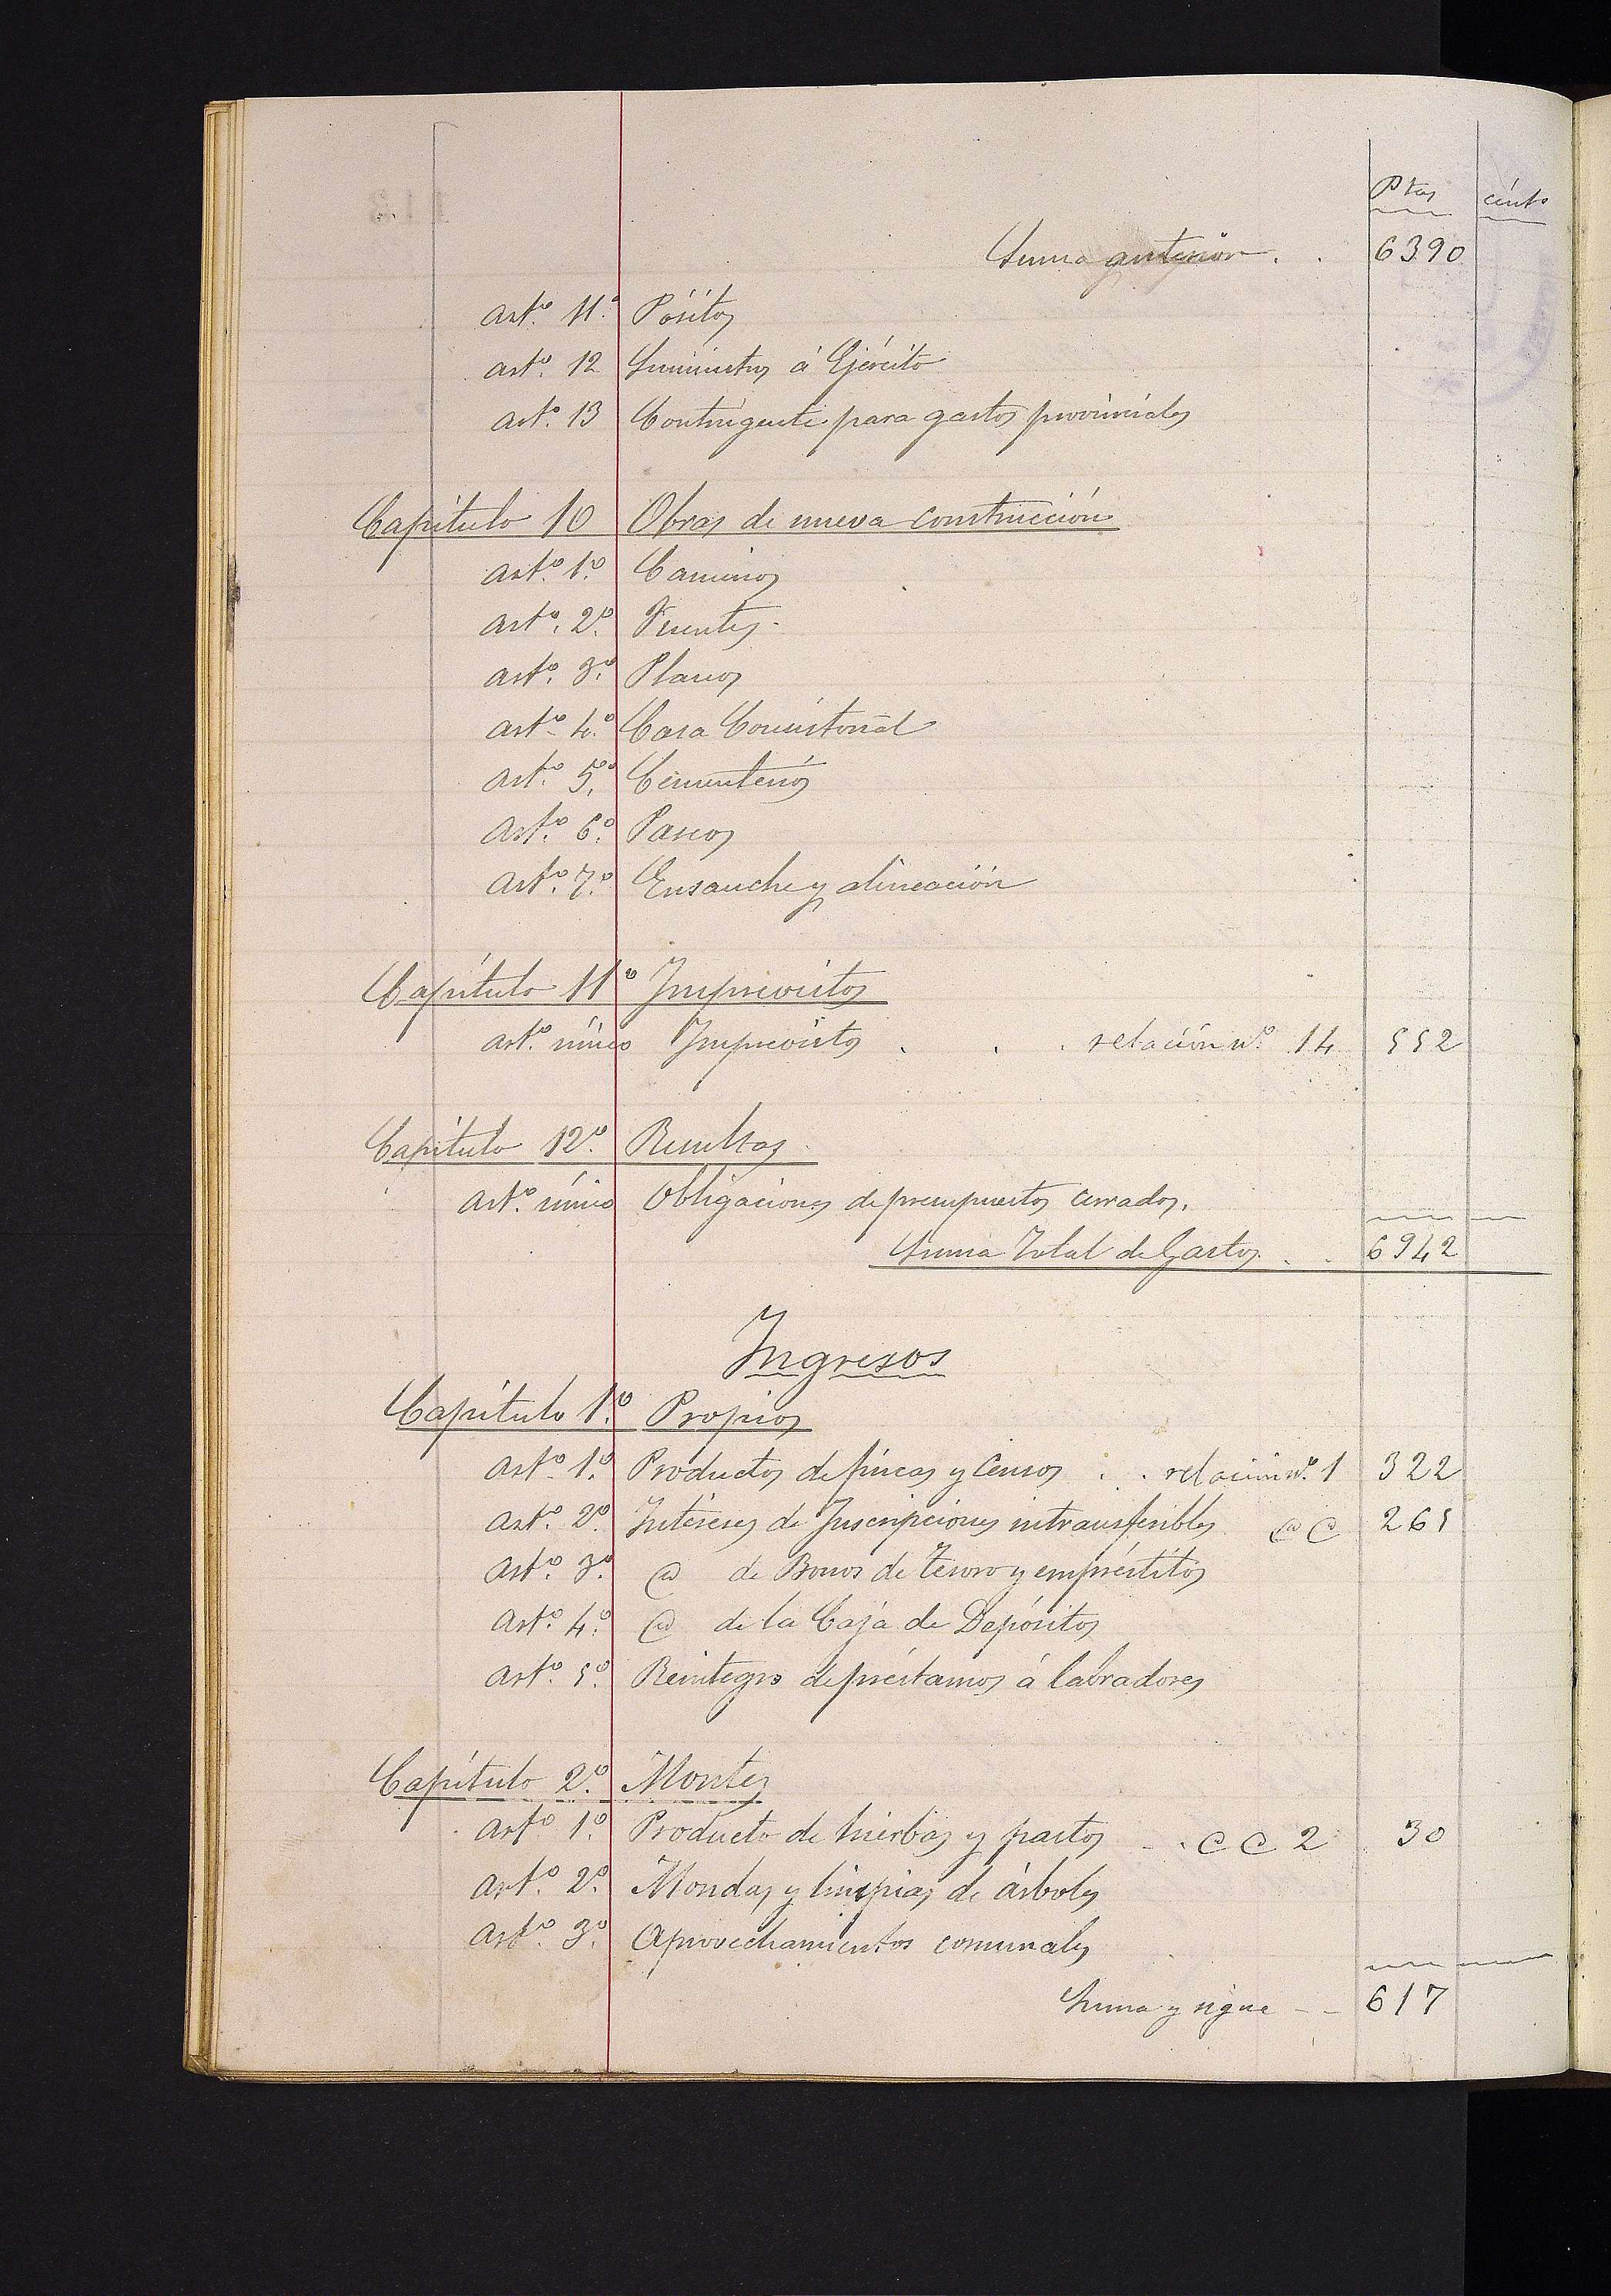 Ptas cénts
Suma anterior . . 6390
art.º 11.º Pósitos
art.º 12 Suministros á Ejército
art.º 13 Contingente para gastos provinciales
Capítulo 10 Obras de nueva construcción
art.º 1.º Caminos
art.º 2.º Fuentes.
art.º 3.º Planos
art.º 4.º Casa Consistorial
art.º 5.º Cementerios
art.º 6.º Paseos
art.º 7.º Ensanche y alineación
Capítulo 11º Imprevistos
art.º único Imprevistos . . . relación n.º 14 552
Capítulo 12º. Resultas
art.º único Obligaciones de presupuestos cerrados.
Suma Total de Gastos . . 6942
Ingresos
Capítulo 1.º Propios
art.º 1.º Productos de fincas y Censos . . relación nº. 1 322
art.º 2.º Intereses de Inscripciones intransferibles @ @ 265
art.º 3.º @ de Bonos de tesoro y empréstitos
art.º 4.º @ de la Caja de Depósitos
art.º 5.º Reintegro de préstamos á labradores
Capítulo 2.º Montes
art.º 1.º Producto de hierbas y pastos - . @ @ 2 30
art.º 2.º Mondas y limpias de árboles
art.º 3.º Aprovechamientos comunales
Suma y sigue - - 617